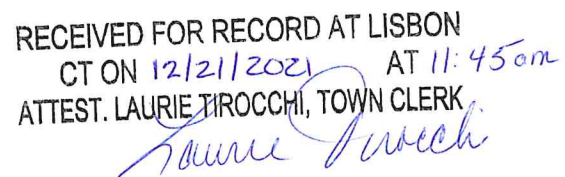 RECEIVED FOR RECORD AT LISBON
CT ON 12/21/2021 AT 11:45am
ATTEST. LAURIE TIROCCHI, TOWN CLERK
Laurie Tirocchi